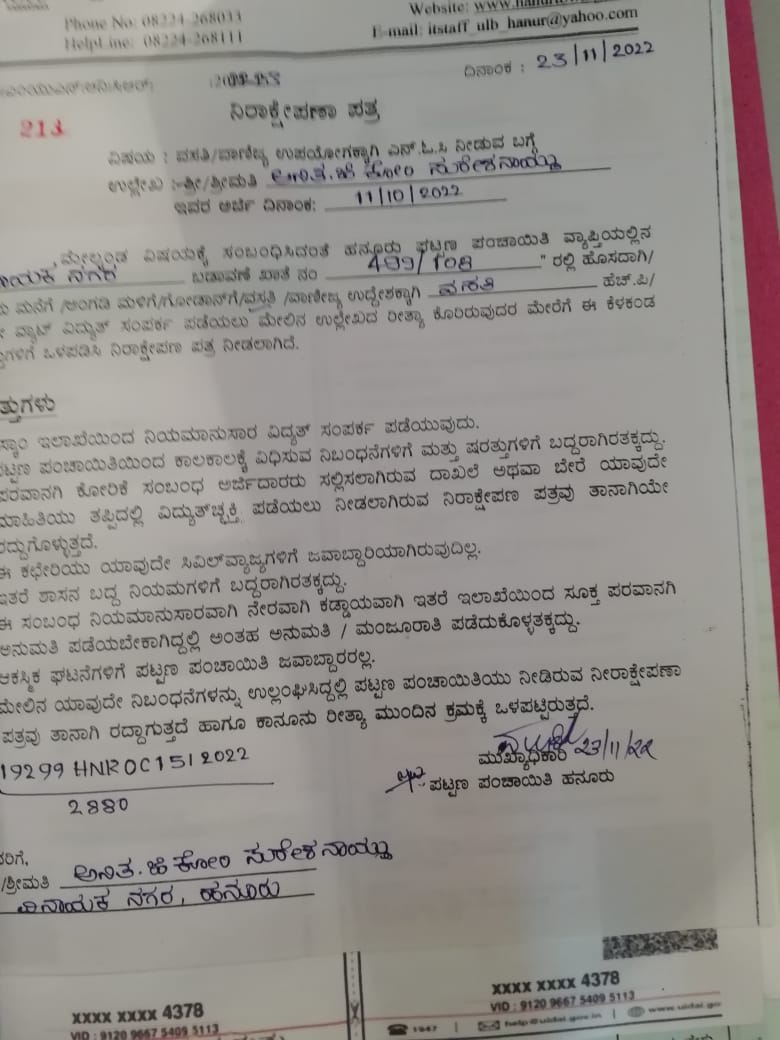 Phone No: 08224-268033
HelpLine: 08224-268111
Website: www.hanurto
E-mail: itstaff_ulb_hanur@yahoo.com
ದಿನಾಂಕ : 23/11/2022
213
ನಿರಾಕ್ಷೇಪಣಾ ಪತ್ರ
ವಿಷಯ : ವಸತಿ/ವಾಣಿಜ್ಯ ಉಪಯೋಗಕ್ಕಾಗಿ ಎನ್.ಓ.ಸಿ ನೀಡುವ ಬಗ್ಗೆ
ಉಲ್ಲೇಖ :-ಶ್ರೀ/ಶ್ರೀಮತಿ ಅನಿತ.ಜಿ ಕೋಂ ಸುರೇಶನಾಯ್ಡು
ಇವರ ಅರ್ಜಿ ದಿನಾಂಕ: 11/10/2022
ಮೇಲ್ಕಂಡ ವಿಷಯಕ್ಕೆ ಸಂಬಂಧಿಸಿದಂತೆ ಹನೂರು ಪಟ್ಟಣ ಪಂಚಾಯಿತಿ ವ್ಯಾಪ್ತಿಯಲ್ಲಿನ
ನಾಯಕ ನಗರ ಬಡಾವಣೆ ಖಾತೆ ನಂ 499/108 " ರಲ್ಲಿ ಹೊಸದಾಗಿ/
ಮನೆಗೆ /ಅಂಗಡಿ ಮಳಿಗೆ/ಗೋಡಾನ್‌ಗೆ/ವಸತಿ /ವಾಣಿಜ್ಯ ಉದ್ದೇಶಕ್ಕಾಗಿ ವಸತಿ ಹೆಚ್.ಪಿ/
ವ್ಯಾಟ್ ವಿದ್ಯುತ್ ಸಂಪರ್ಕ ಪಡೆಯಲು ಮೇಲಿನ ಉಲ್ಲೇಖದ ರೀತ್ಯಾ ಕೋರಿರುವುದರ ಮೇರೆಗೆ ಈ ಕೆಳಕಂಡ
ತ್ತುಗಳಿಗೆ ಒಳಪಡಿಸಿ ನಿರಾಕ್ಷೇಪಣ ಪತ್ರ ನೀಡಲಾಗಿದೆ.
ತ್ತುಗಳು
ಸ್ಕಾಂ ಇಲಾಖೆಯಿಂದ ನಿಯಮಾನುಸಾರ ವಿದ್ಯತ್ ಸಂಪರ್ಕ ಪಡೆಯುವುದು.
ಪಟ್ಟಣ ಪಂಚಾಯಿತಿಯಿಂದ ಕಾಲಕಾಲಕ್ಕೆ ವಿಧಿಸುವ ನಿಬಂಧನೆಗಳಿಗೆ ಮತ್ತು ಷರತ್ತುಗಳಿಗೆ ಬದ್ದರಾಗಿರತಕ್ಕದ್ದು.
ಪರವಾನಗಿ ಕೋರಿಕೆ ಸಂಬಂಧ ಅರ್ಜಿದಾರರು ಸಲ್ಲಿಸಲಾಗಿರುವ ದಾಖಲೆ ಅಥವಾ ಬೇರೆ ಯಾವುದೇ
ಮಾಹಿತಿಯು ತಪ್ಪಿದಲ್ಲಿ ವಿದ್ಯುತ್‌ಚ್ಛಕ್ತಿ ಪಡೆಯಲು ನೀಡಲಾಗಿರುವ ನಿರಾಕ್ಷೇಪಣ ಪತ್ರವು ತಾನಾಗಿಯೇ
ರದ್ದುಗೊಳ್ಳುತ್ತದೆ.
ಈ ಕಛೇರಿಯು ಯಾವುದೇ ಸಿವಿಲ್‌ವ್ಯಾಜ್ಯಗಳಿಗೆ ಜವಾಬ್ದಾರಿಯಾಗಿರುವುದಿಲ್ಲ.
ಇತರೆ ಶಾಸನ ಬದ್ದ ನಿಯಮಗಳಿಗೆ ಬದ್ದರಾಗಿರತಕ್ಕದ್ದು.
ಈ ಸಂಬಂಧ ನಿಯಮಾನುಸಾರವಾಗಿ ನೇರವಾಗಿ ಕಡ್ಡಾಯವಾಗಿ ಇತರೆ ಇಲಾಖೆಯಿಂದ ಸೂಕ್ತ ಪರವಾನಗಿ
ಅನುಮತಿ ಪಡೆಯಬೇಕಾಗಿದ್ದಲ್ಲಿ ಅಂತಹ ಅನುಮತಿ / ಮಂಜೂರಾತಿ ಪಡೆದುಕೊಳ್ಳತಕ್ಕದ್ದು.
ಆಕಸ್ಮಿಕ ಘಟನೆಗಳಿಗೆ ಪಟ್ಟಣ ಪಂಚಾಯಿತಿ ಜವಾಬ್ದಾರರಲ್ಲ.
ಮೇಲಿನ ಯಾವುದೇ ನಿಬಂಧನೆಗಳನ್ನು ಉಲ್ಲಂಘಿಸಿದ್ದಲ್ಲಿ ಪಟ್ಟಣ ಪಂಚಾಯಿತಿಯು ನೀಡಿರುವ ನೀರಾಕ್ಷೇಪಣಾ
ಪತ್ರವು ತಾನಾಗಿ ರದ್ದಾಗುತ್ತದೆ ಹಾಗೂ ಕಾನೂನು ರೀತ್ಯಾ ಮುಂದಿನ ಕ್ರಮಕ್ಕೆ ಒಳಪಟ್ಟಿರುತ್ತದೆ.
19299 HNROC15/2022
2880
ಮುಖ್ಯಾಧಿಕಾರಿ 23/11/22
ಪಟ್ಟಣ ಪಂಚಾಯಿತಿ ಹನೂರು
ರಿಗೆ,
/ಶ್ರೀಮತಿ ಅನಿತ.ಜಿ ಕೋಂ ಸುರೇಶನಾಯ್ಡು
ವಿನಾಯಕ ನಗರ, ಹನೂರು
xxxx xxxx 4378
VID : 9120 9667 5409 5113
xxxx xxxx 4378
VID : 9120 9667 5409 5113
1947 | help@uidai.gov.in | www.uidai.go